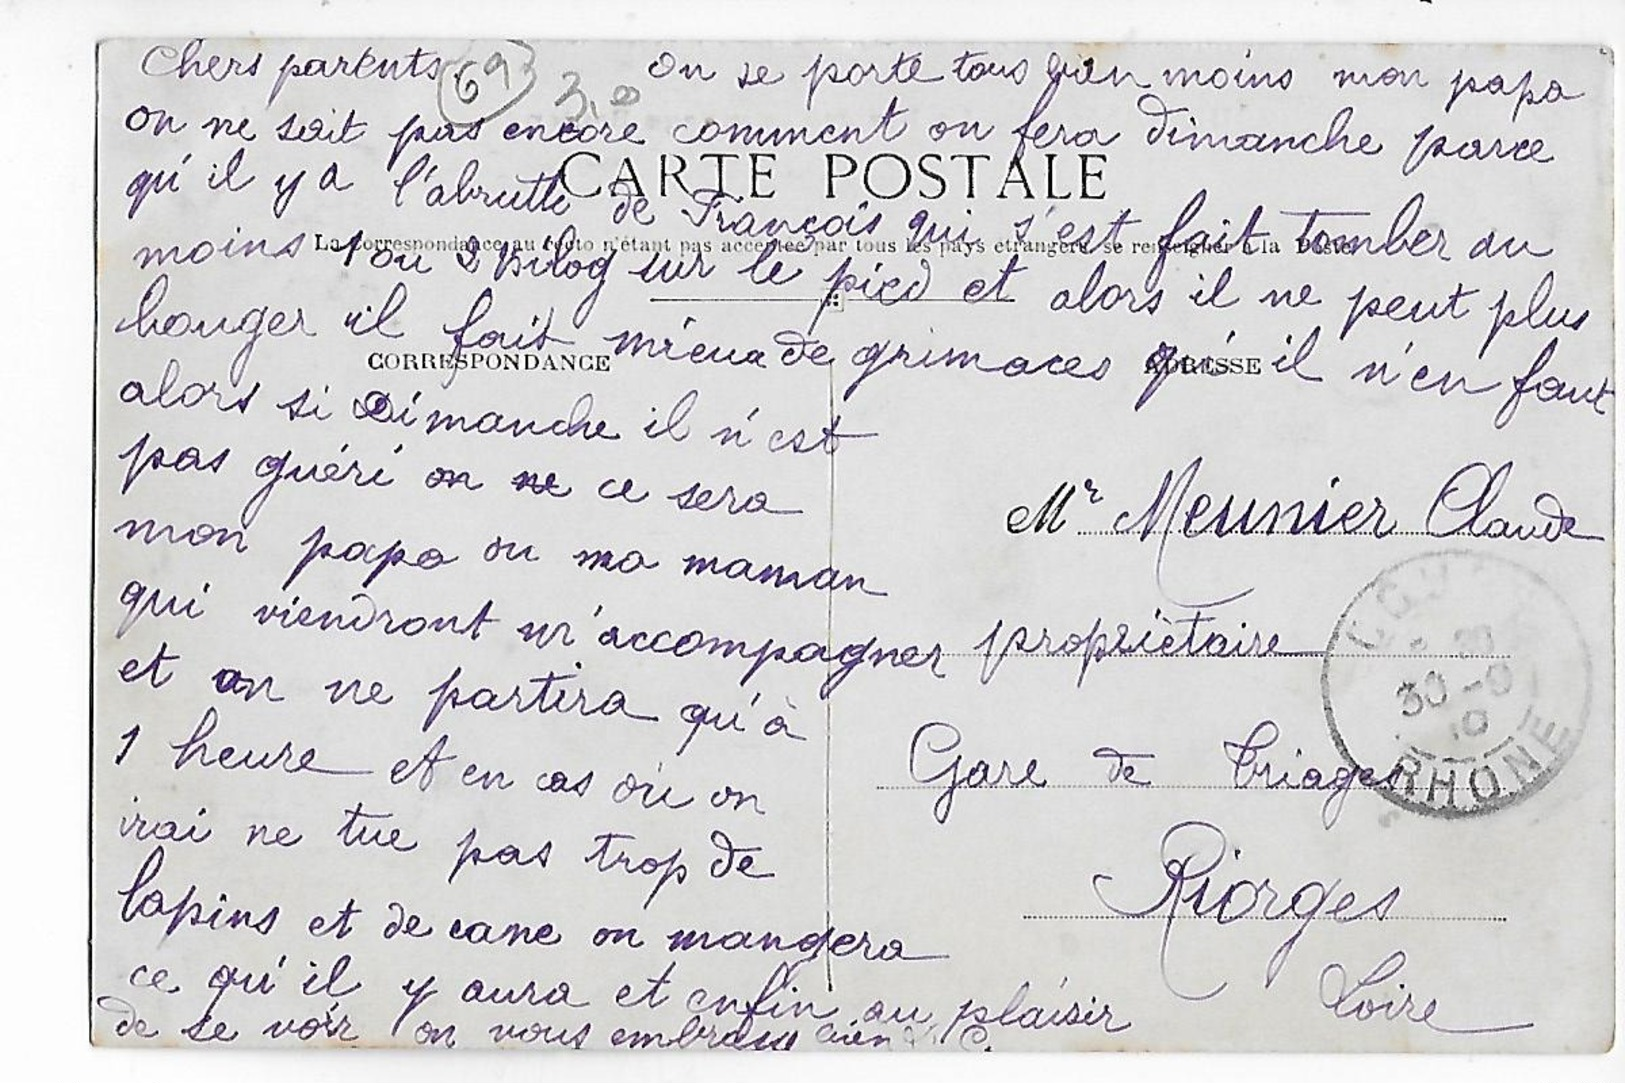 Chers parents On se porte tous bien moins mon papa
69 3,00
on ne sait pas encore comment on fera dimanche parce
qu'il y a l'abrutte de François qui s'est fait tomber au
CARTE POSTALE
La Correspondance au recto n'étant pas acceptée par tous les pays étrangers, se renseigner à la Poste
moins 1 ou 2 kilog sur le pied et alors il ne peut plus
bouger il fait mieux de grimaces qu'il n'en faut
CORRESPONDANCE
ADRESSE
alors si Dimanche il n'est
pas guéri on ne ce sera
mon papa ou ma maman
qui viendront m'accompagner
et on ne partira qu'à
1 heure et en cas où on
irai ne tue pas trop de
lapins et de cane on mangera
ce qu'il y aura et enfin au plaisir
de se voir on vous embrasse bien
Mr Meunier Claude
propriètaire
Gare de triages
Riorges
Loire
30
10
RHONE